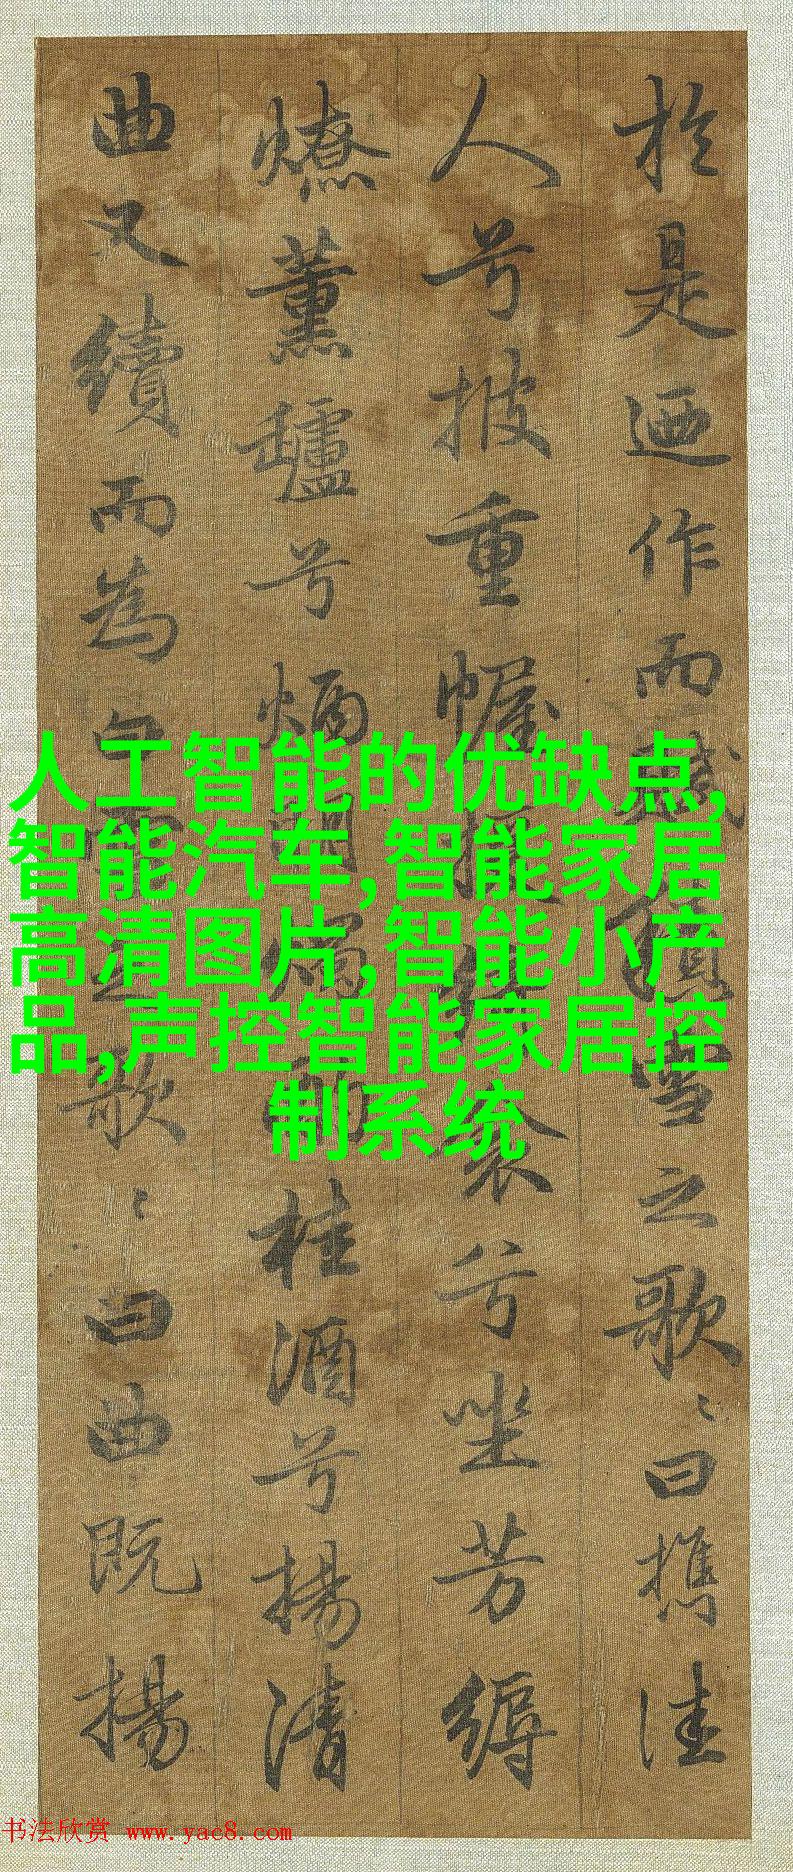 於是迺作而賦積雪之歌〻曰攜佳
人兮披重幄援綺衾兮坐芳縟
燎薰鑪兮炳明燭酌桂酒兮揚清
曲又續而為白雪之歌〻曰曲既揚
人工智能的优缺点,
智能汽车,智能家居
高清图片,智能小产
品,声控智能家居控
制系统
书法欣赏 www.yac8.com